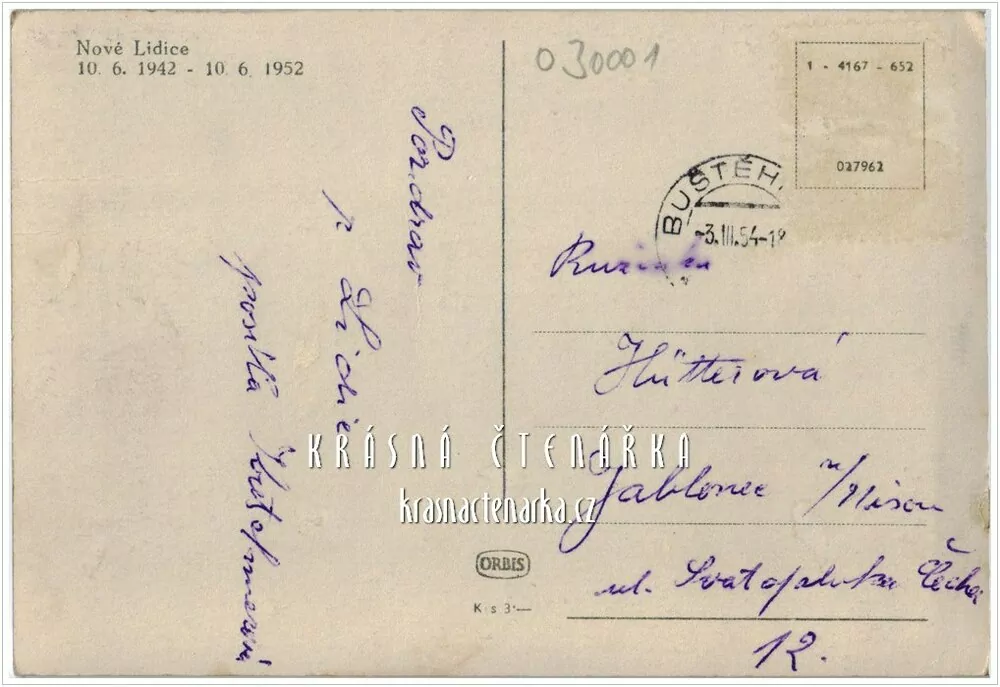 Nové Lidice
10. 6. 1942 - 10. 6. 1952
030001
1 - 4167 - 652
027962
BUŠTĚH
-3.III.54-18
Pozdrav
z Lidic
posílá
Hütterová
Jablonec n/Nisou
ul. Svatopluka Čecha
12.
KRÁSNÁ ČTENÁŘKA
krasnactenarka.cz
ORBIS
Kčs 3·—